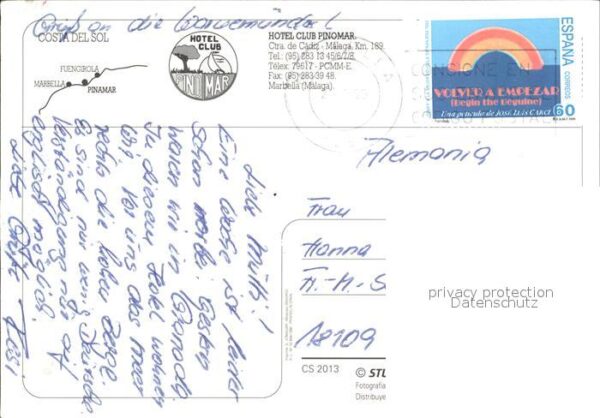 Gruß an die Warnemünder!
COSTA DEL SOL
FUENGIROLA
MARBELLA
PINAMAR
HOTEL CLUB
PINOMAR
HOTEL CLUB PINOMAR.
Ctra. de Cádiz - Málaga, Km. 189.
Tel.: (95) 283 13 45/6/7/8.
Télex. 79617 - PCMM-E.
Fax: (95) 283 39 48.
Marbella (Málaga).
CONSIGNE EN
ESPAÑA
CORREOS
VOLVER A EMPEZAR
(Begin the Beguine)
Una película de JOSÉ LUIS GARCI
60
Liebe Mutti!
Eine Woche ist leider
schon vorbei. Gestern
waren wir in Granada
In diesem Hotel wohnen
wir, vor uns das Meer
rechts die hohen Berge.
Es sind nur wenig Deutsche
Verständigung nur auf
englisch möglich.
Liebe Grüße
Alemania
Frau
Hanna
H.-H.-S
18109
privacy protection
Datenschutz
CS 2013
© STU
Fotografía
Distribuye